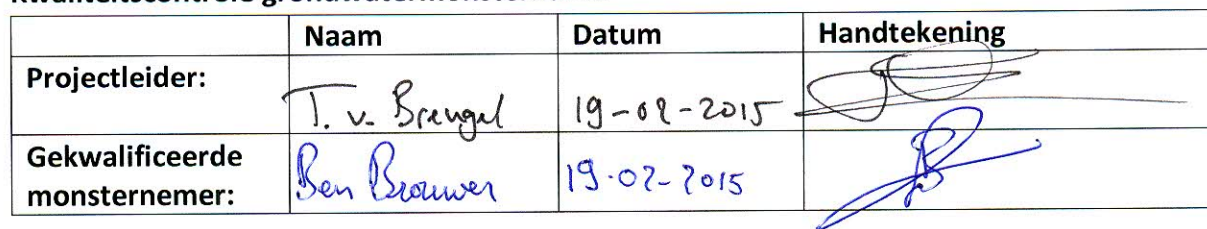 Naam Datum Handtekening
Projectleider: T. v. Brengel 19-02-2015
Gekwalificeerde monsternemer: Ben Brouwer 19-02-2015